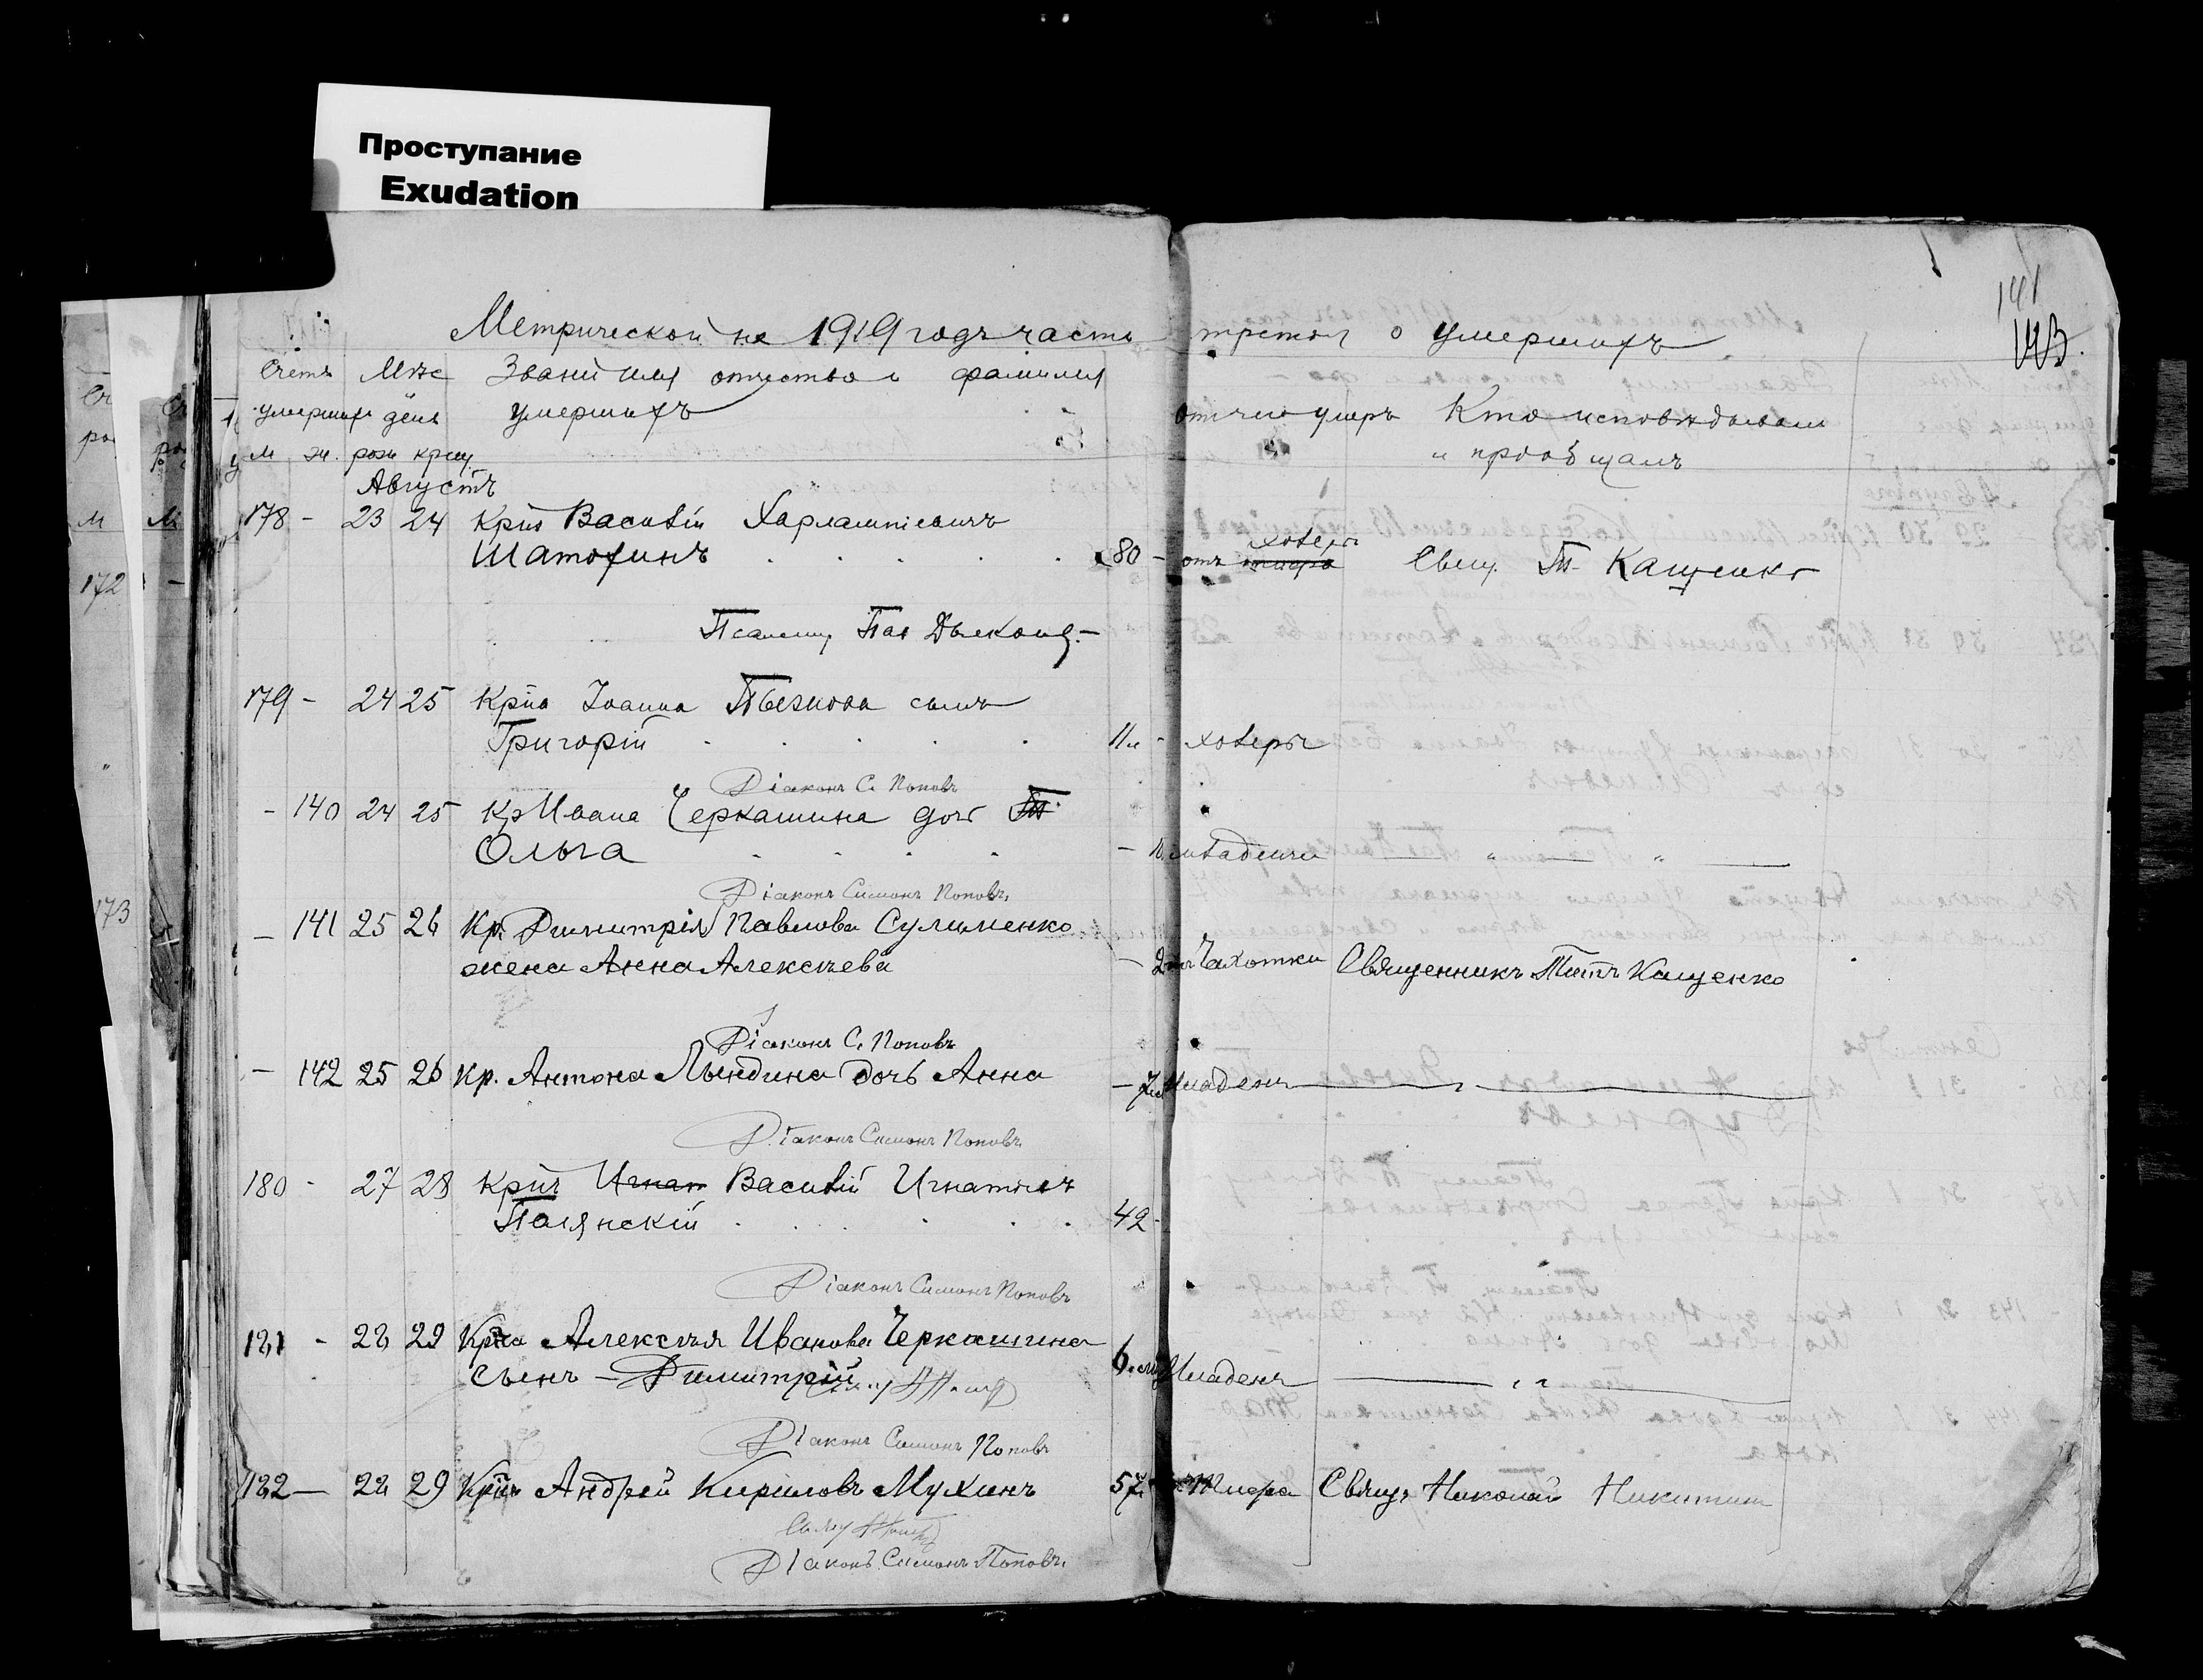 Проступание
Exudation
141
Метрической на 1919 годъ часть третья о умершихъ
Счетъ Мѣс Званіе имя отчество и фамилия
умершихъ день умершихъ отчего умеръ Кто исповѣдывалъ
м ж. рож крещ. и пріобщалъ
Августъ
178 - 23 24 Кринъ Василій Харлампіевичъ
Шатохинъ 80 - отъ холеры Свящ. Т. Кащенко
Псаломщ. Пав Дьяконов
179 - 24 25 Крна Іоанна сынъ
Григорій 11 м - холеры
Діаконъ С. Поповъ
- 140 24 25 Кр Ивана Черкашина доч
Ольга - младенч
Діаконъ Симонъ Поповъ
- 141 25 26 Кр. Димитрія Павлова Сулименко
жена Анна Алексѣева - Чахотки Священникъ Титъ Кащенко
Діаконъ С. Поповъ
- 142 25 26 кр. Антона Лындина дочь Анна - Младенч
Діаконъ Симонъ Поповъ
180 - 27 28 Кринъ Игнат Василій Игнатьевъ
Полянскій 42 -
Діаконъ Симонъ Поповъ
181 - 28 29 Крна Алексѣя Иванова Черкашина
сынъ - Димитрій 6 Младенч
Діаконъ Симонъ Поповъ
182 - 28 29 Кринъ Андрей Кириловъ Мухинъ 57 Тифа Свящ. Николай Никитин
Діаконъ Симонъ Поповъ
172
173